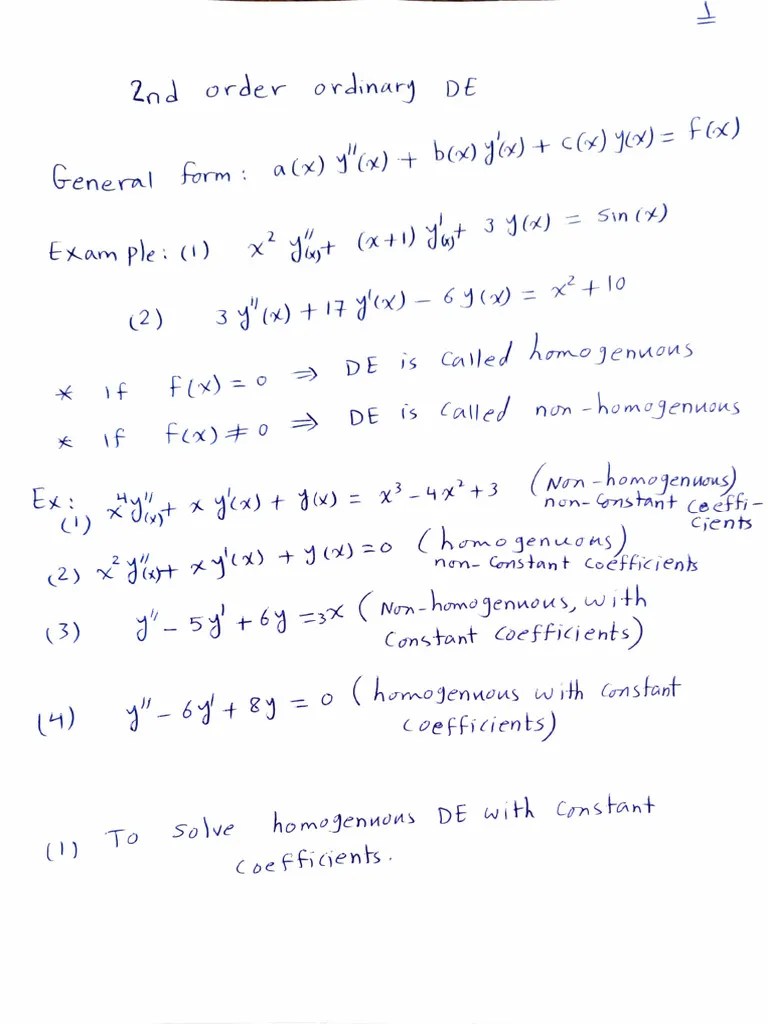 1
2nd order ordinary DE
General form: a(x) y''(x) + b(x) y'(x) + c(x) y(x) = f(x)
Example: (1) x² y''(x) + (x+1) y'(x) + 3 y(x) = sin(x)
(2) 3 y''(x) + 17 y'(x) - 6 y(x) = x² + 10
* if f(x) = 0 ⇒ DE is called homogenuous
* if f(x) ≠ 0 ⇒ DE is called non-homogenuous
Ex:
(1) x⁴y''(x) + x y'(x) + y(x) = x³ - 4x² + 3 (Non-homogenuous)
non-constant coeffi-
cients
(2) x² y''(x) + x y'(x) + y(x) = 0 (homogenuous)
non-constant coefficients
(3) y'' - 5y' + 6y = 3x (Non-homogenuous, with
constant coefficients)
(4) y'' - 6y' + 8y = 0 (homogenuous with constant
coefficients)
(1) To solve homogenuous DE with constant
coefficients.